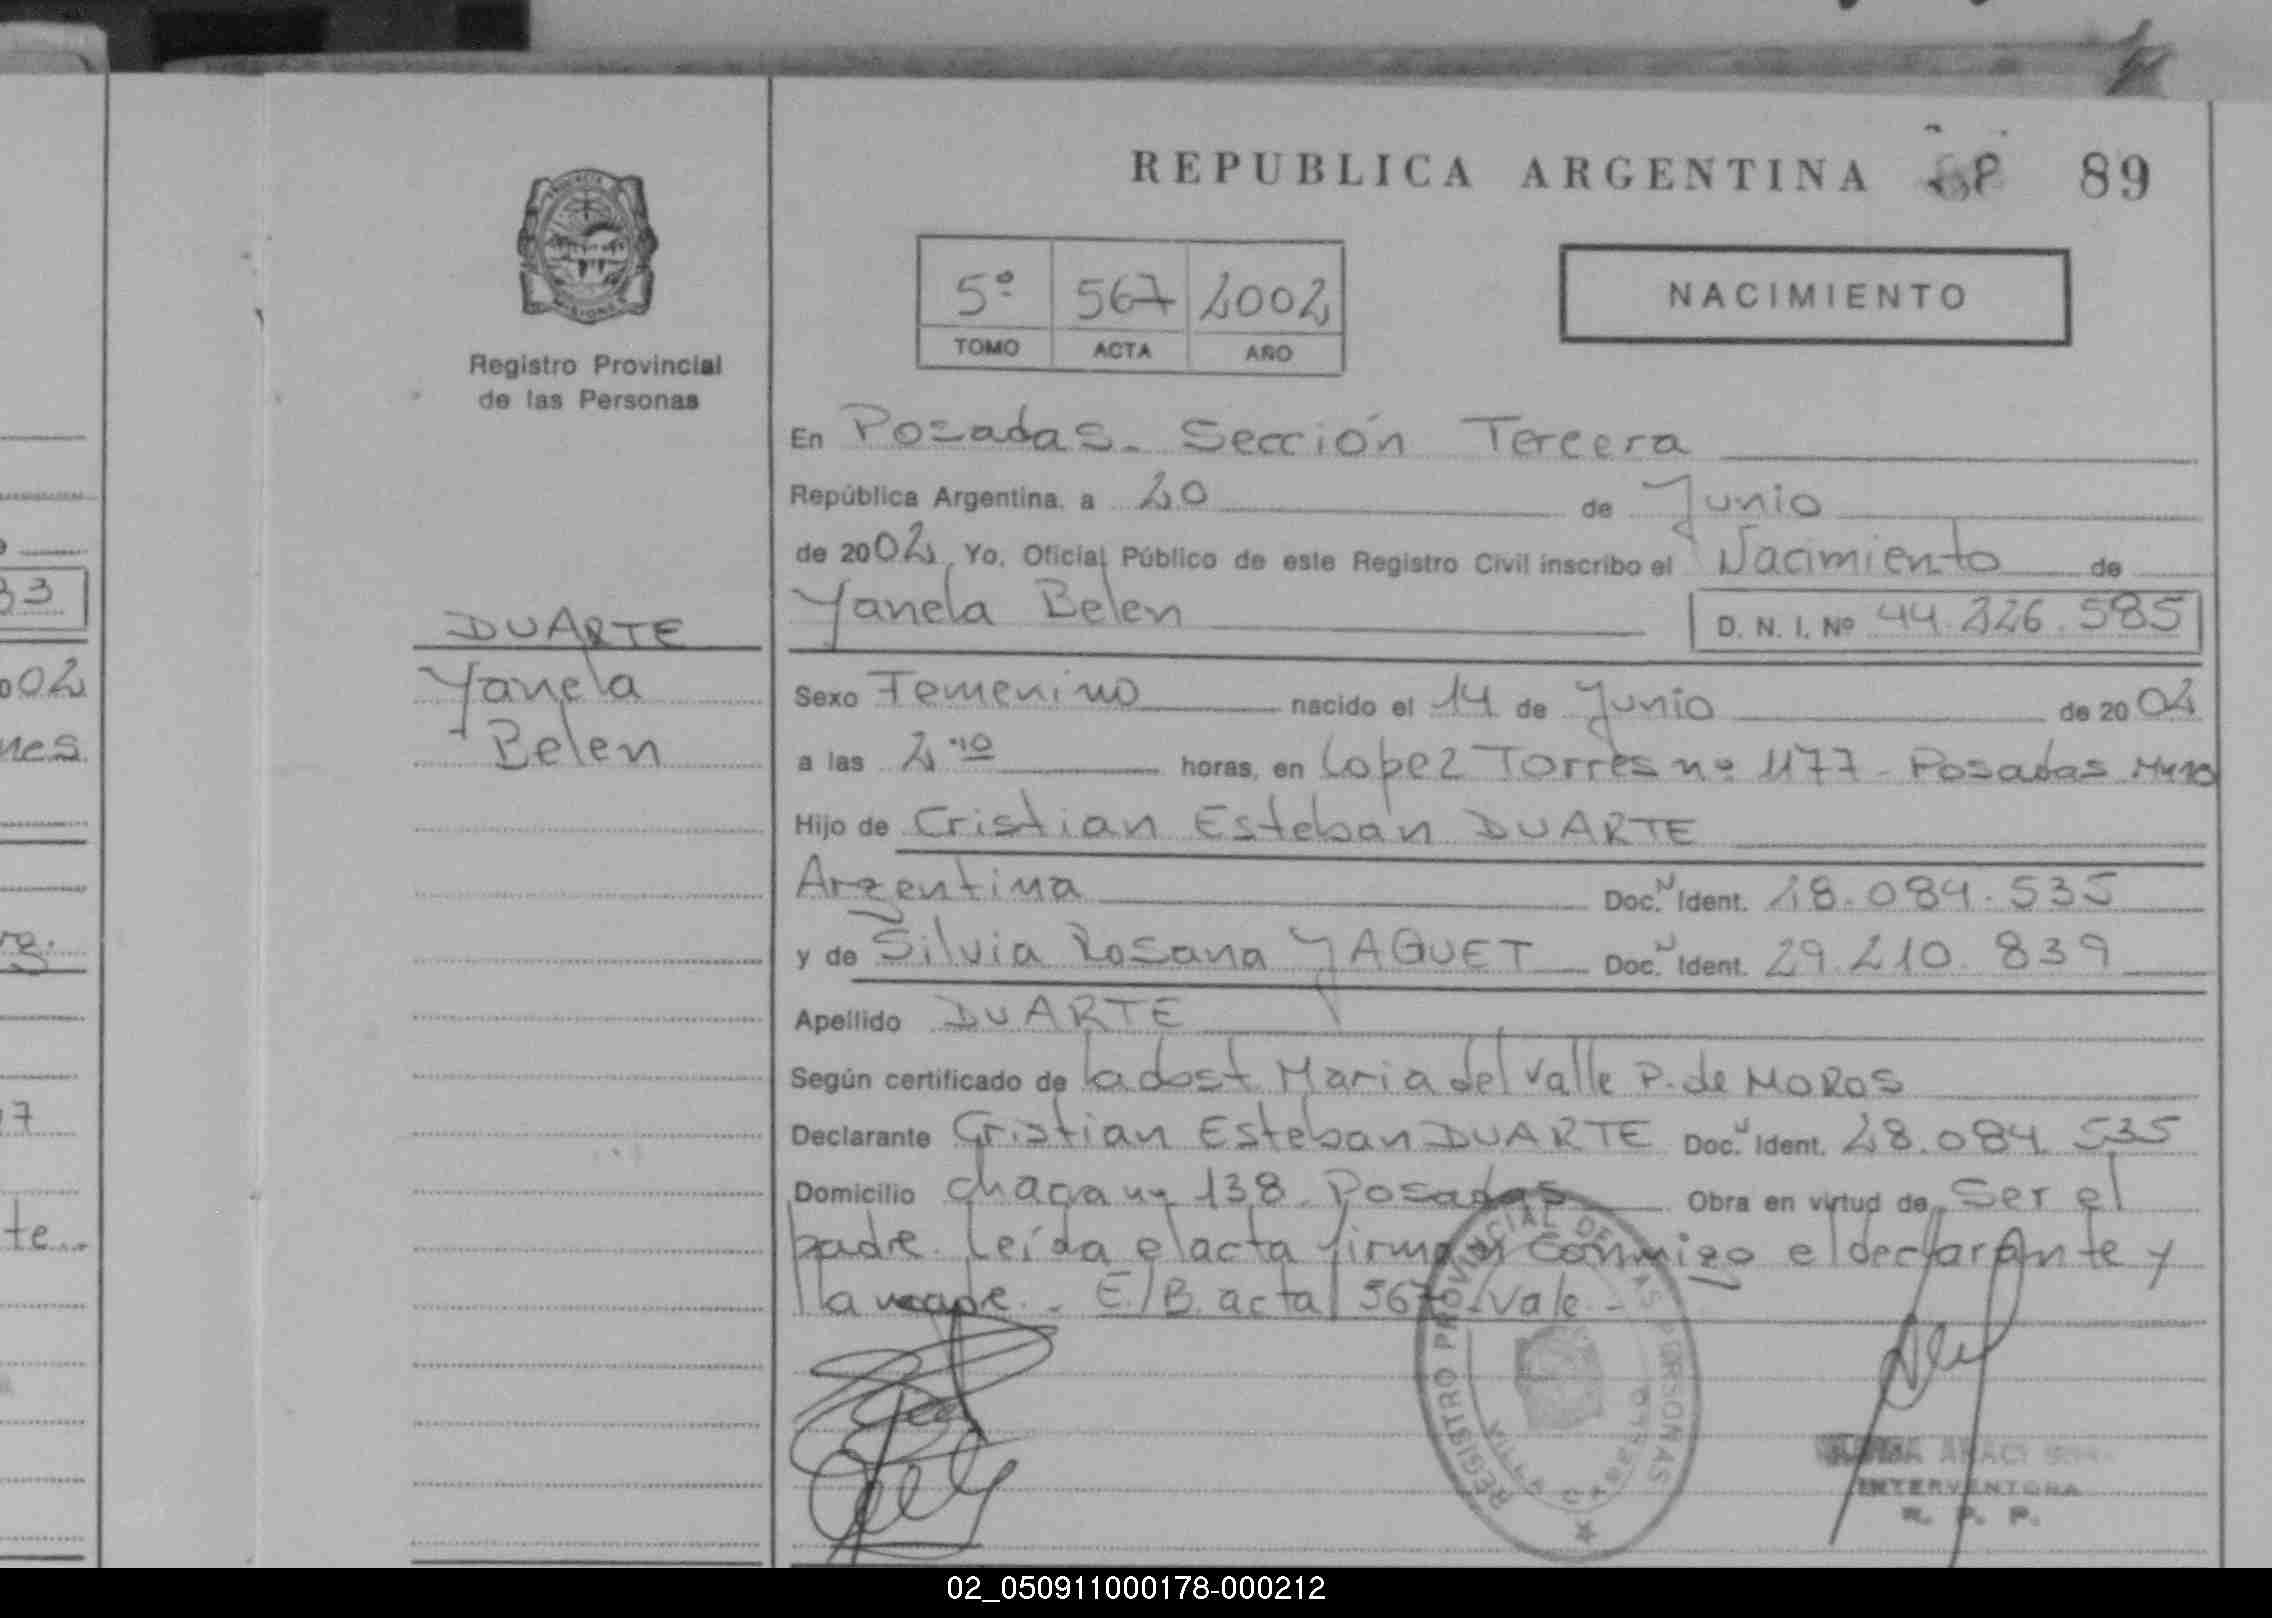 REPUBLICA ARGENTINA 89
5º 567 2002
TOMO ACTA AÑO
NACIMIENTO
Registro Provincial
de las Personas
En Posadas. Sección Tercera
República Argentina, a 20 de Junio
de 2002 Yo, Oficial Público de este Registro Civil inscribo el Nacimiento de
Yanela Belen D. N. I. Nº 44.226.585
DUARTE
Yanela
Belen
Sexo Femenino nacido el 14 de Junio de 2002
a las 2·10 horas, en Lopez Torres nº 1177 - Posadas Mnes
Hijo de Cristian Esteban DUARTE
Argentina Doc.N Ident. 28.084.535
y de Silvia Rosana YAGUET Doc.N Ident. 29.210.839
Apellido DUARTE
Según certificado de la obst. Maria del Valle P. de MOROS
Declarante Cristian Esteban DUARTE Doc.N Ident. 28.084.535
Domicilio chacra 138. Posadas Obra en virtud de Ser el
padre. Leída el acta firman conmigo el declarante y
la madre. - E/B. acta 567. Vale -
REGISTRO PROVINCIAL DE LAS PERSONAS
VILLA CABELLO
INTERVENTORA
R. P. P.
02_050911000178-000212